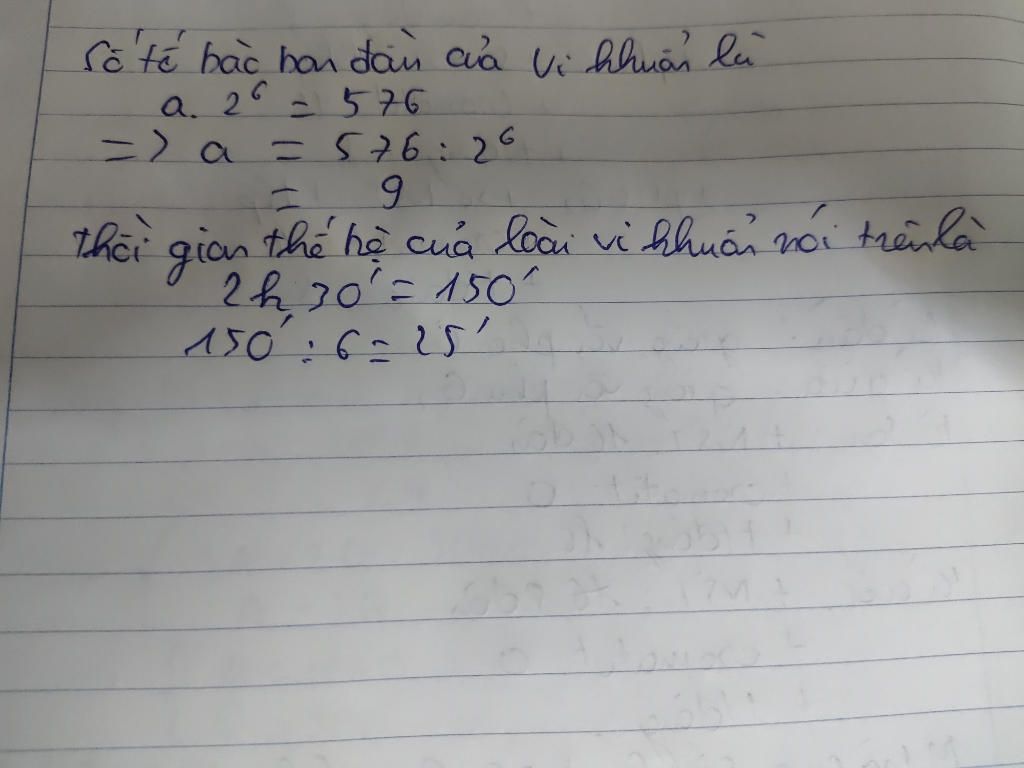 Số tế bào ban đầu của vi khuẩn là
a. 2⁶ = 576
=> a = 576 : 2⁶
= 9
thời gian thế hệ của loài vi khuẩn nói trên là
2h 30' = 150'
150' : 6 = 25'